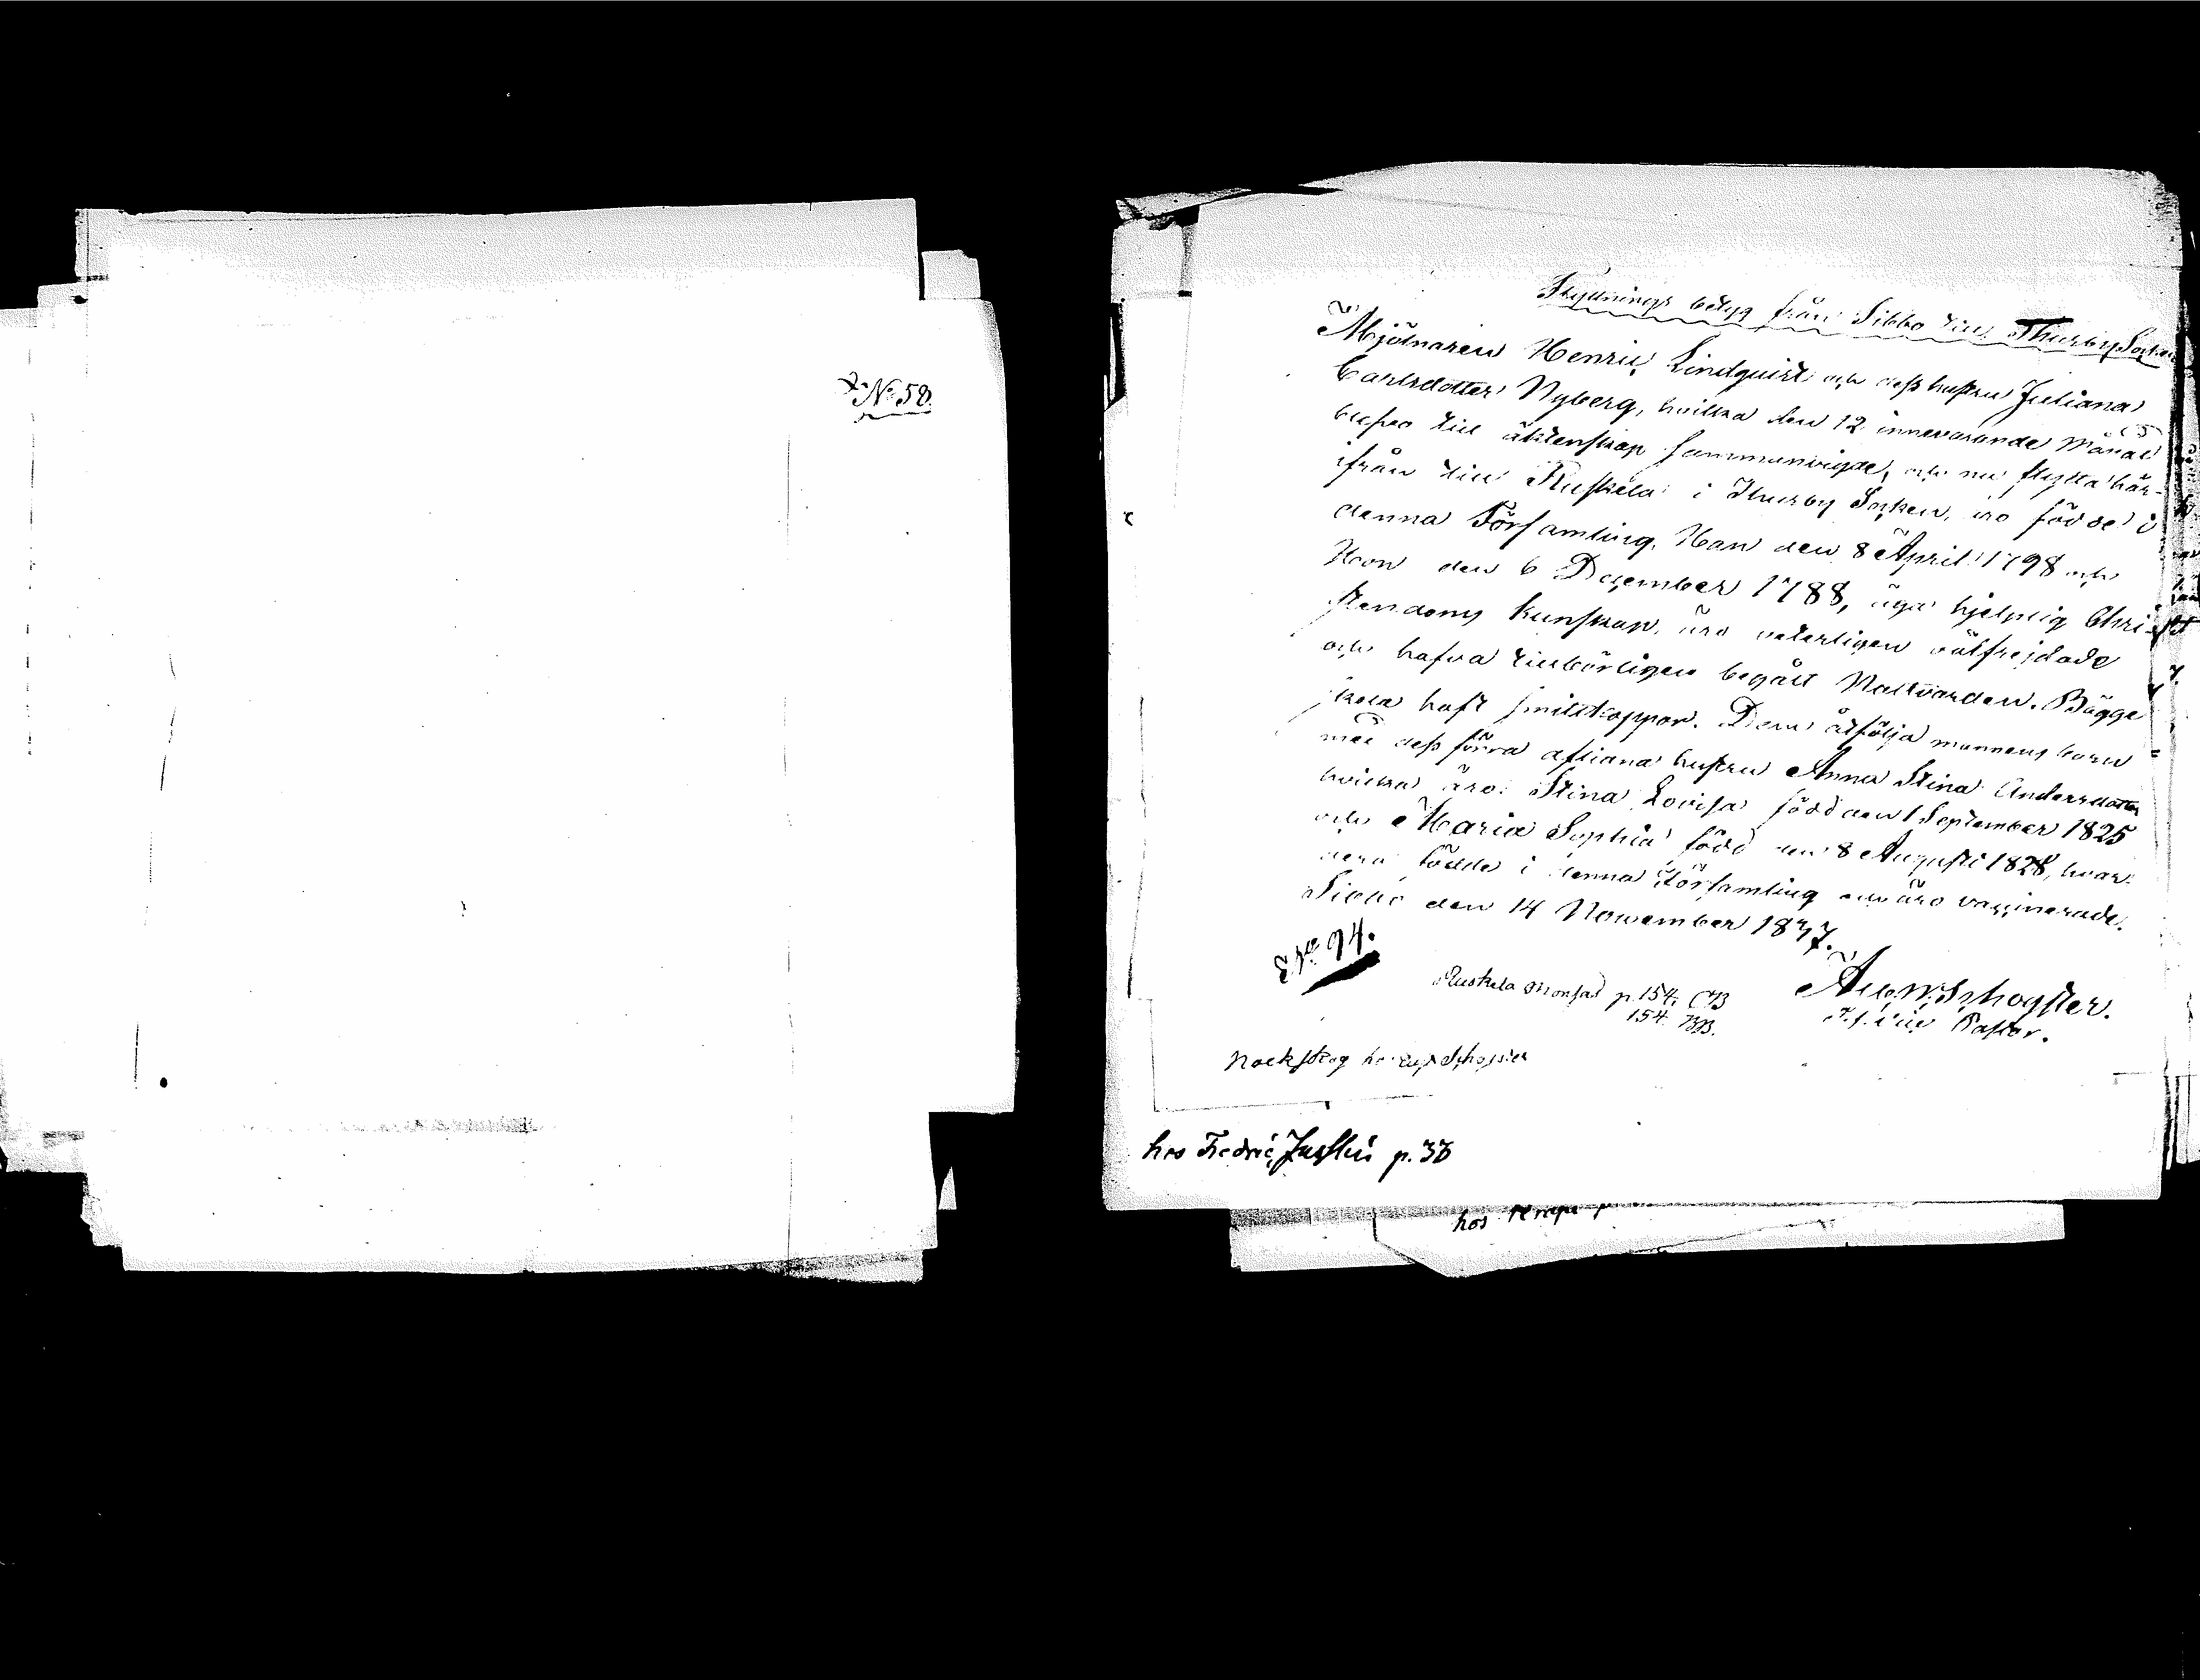 N:o 58.
Flyttnings betyg från Sibbo till Thusby Socken
Mjölnaren Henric Lindquist och dess hustru Juliana
Carlsdotter Nyberg, hvilka den 12 innevarande Månad
blefvo till äktenskap sammanvigde, och nu flytta här-
ifrån till Ruskela i Thusby Socken, äro födde i
denna Församling, Han den 8 April 1798 och
Hon den 6 December 1788, äga hjelplig Chri-
stendoms kunskap, äro veterligen välfrejdade
och hafva tillbörligen begått Nattvarden. Bägge
skola haft smittkoppor. Dem åtfölja mannens barn
med dess förra aflidna hustru Anna Stina Andersdotter
hvilka äro: Stina Lovisa född den 1 September 1825
och Maria Sophia född den 8 Augusti 1828, hvar-
dera födde i denna Församling och äro vaccinerade.
Sibbo den 14 November 1837.
N:o 94.
Aug. W. Schogster.
Ruskela Monsas p. 154. CB
154. BB.
v. Pastor.
Nackskog
hos Fredric p. 38
hos